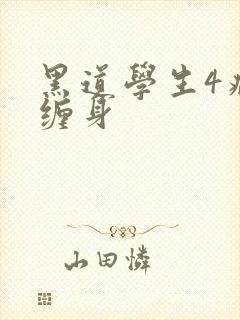 黑道學生4
缠身
山田憐